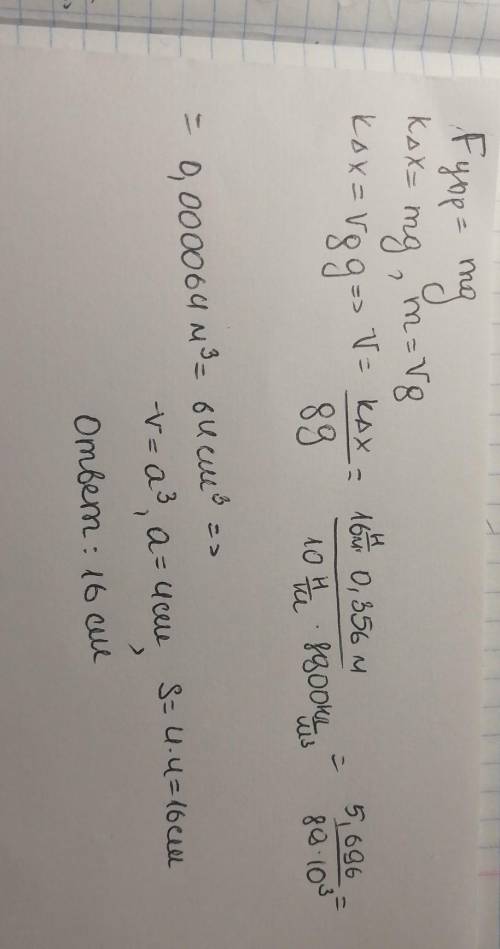 Fупр = mg
kΔx = mg, m = Vρ
kΔx = Vρg => V = kΔx / ρg = 16 Н/м · 0,356 м / 10 Н/кг · 8900 кг/м³ = 5,696 / 89·10³ =
= 0,000064 м³ = 64 см³ =>
-V = a³, a = 4 см, S = 4·4 = 16 см
Ответ: 16 см